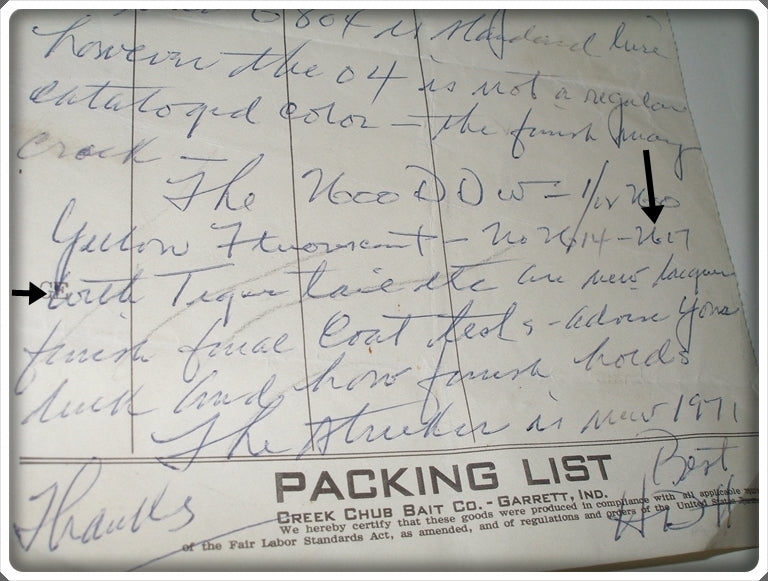 6804 is standard lure
however the 04 is not a regular
cataloged color – the finish may
crack –
The 2600 DDW – 1/12 2600
Yellow Fluorescent – No 2614 – 2617
with Tiger tail etc are new lacquer
finish final Coat tests – advise your
luck and how finish holds
The Striker is new 1971
PACKING LIST
Best
CREEK CHUB BAIT CO. - GARRETT, IND.
Thanks
We hereby certify that these goods were produced in compliance with all applicable
of the Fair Labor Standards Act, as amended, and of regulations and orders of the United States